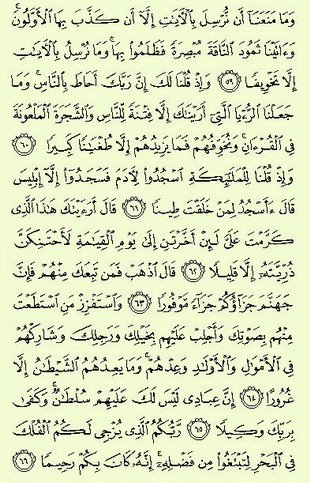 وَمَا مَنَعَنَآ أَن نُّرْسِلَ بِٱلْءَايَٰتِ إِلَّآ أَن كَذَّبَ بِهَا ٱلْأَوَّلُونَ ۚ
وَءَاتَيْنَا ثَمُودَ ٱلنَّاقَةَ مُبْصِرَةً فَظَلَمُوا۟ بِهَا ۚ وَمَا نُرْسِلُ بِٱلْءَايَٰتِ
إِلَّا تَخْوِيفًا ٥٩ وَإِذْ قُلْنَا لَكَ إِنَّ رَبَّكَ أَحَاطَ بِٱلنَّاسِ ۚ وَمَا
جَعَلْنَا ٱلرُّءْيَا ٱلَّتِىٓ أَرَيْنَٰكَ إِلَّا فِتْنَةً لِّلنَّاسِ وَٱلشَّجَرَةَ ٱلْمَلْعُونَةَ
فِى ٱلْقُرْءَانِ ۚ وَنُخَوِّفُهُمْ فَمَا يَزِيدُهُمْ إِلَّا طُغْيَٰنًا كَبِيرًا ٦٠
وَإِذْ قُلْنَا لِلْمَلَٰٓئِكَةِ ٱسْجُدُوا۟ لِءَادَمَ فَسَجَدُوٓا۟ إِلَّآ إِبْلِيسَ
قَالَ ءَأَسْجُدُ لِمَنْ خَلَقْتَ طِينًا ٦١ قَالَ أَرَءَيْتَكَ هَٰذَا ٱلَّذِى
كَرَّمْتَ عَلَىَّ لَئِنْ أَخَّرْتَنِ إِلَىٰ يَوْمِ ٱلْقِيَٰمَةِ لَأَحْتَنِكَنَّ
ذُرِّيَّتَهُۥٓ إِلَّا قَلِيلًا ٦٢ قَالَ ٱذْهَبْ فَمَن تَبِعَكَ مِنْهُمْ فَإِنَّ
جَهَنَّمَ جَزَآؤُكُمْ جَزَآءً مَّوْفُورًا ٦٣ وَٱسْتَفْزِزْ مَنِ ٱسْتَطَعْتَ
مِنْهُم بِصَوْتِكَ وَأَجْلِبْ عَلَيْهِم بِخَيْلِكَ وَرَجِلِكَ وَشَارِكْهُمْ
فِى ٱلْأَمْوَٰلِ وَٱلْأَوْلَٰدِ وَعِدْهُمْ ۚ وَمَا يَعِدُهُمُ ٱلشَّيْطَٰنُ إِلَّا
غُرُورًا ٦٤ إِنَّ عِبَادِى لَيْسَ لَكَ عَلَيْهِمْ سُلْطَٰنٌ ۚ وَكَفَىٰ
بِرَبِّكَ وَكِيلًا ٦٥ رَّبُّكُمُ ٱلَّذِى يُزْجِى لَكُمُ ٱلْفُلْكَ
فِى ٱلْبَحْرِ لِتَبْتَغُوا۟ مِن فَضْلِهِۦٓ ۚ إِنَّهُۥ كَانَ بِكُمْ رَحِيمًا ٦٦